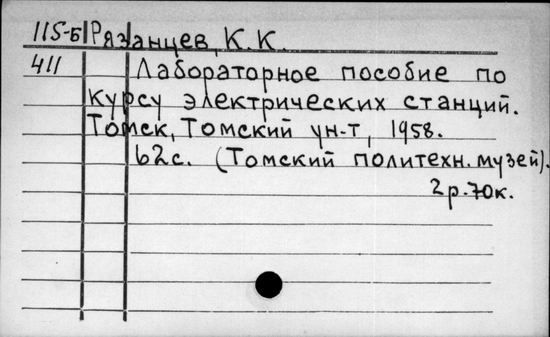 115-Б Рязанцев, К.К.
411 Лабораторное пособие по
курсу электрических станций.
Томск, Томский ун-т, 1958.
62с. (Томский политехн. музей).
2р.70к.